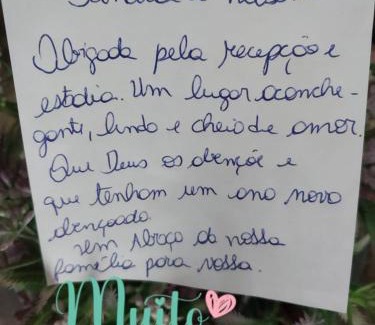 Obrigada pela recepção e
estadia. Um lugar aconche-
gante, lindo e cheio de amor.
Que Deus os abençõe e
que tenham um ano novo
abençoado
um abraço da nossa
família para vossa.
Muito